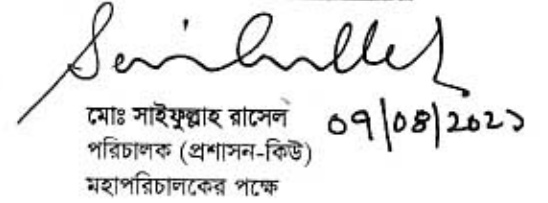 মোঃ সাইফুল্লাহ রাসেল ০৭/০৪/২০২১
পরিচালক (প্রশাসন-কিউ)
মহাপরিচালকের পক্ষে